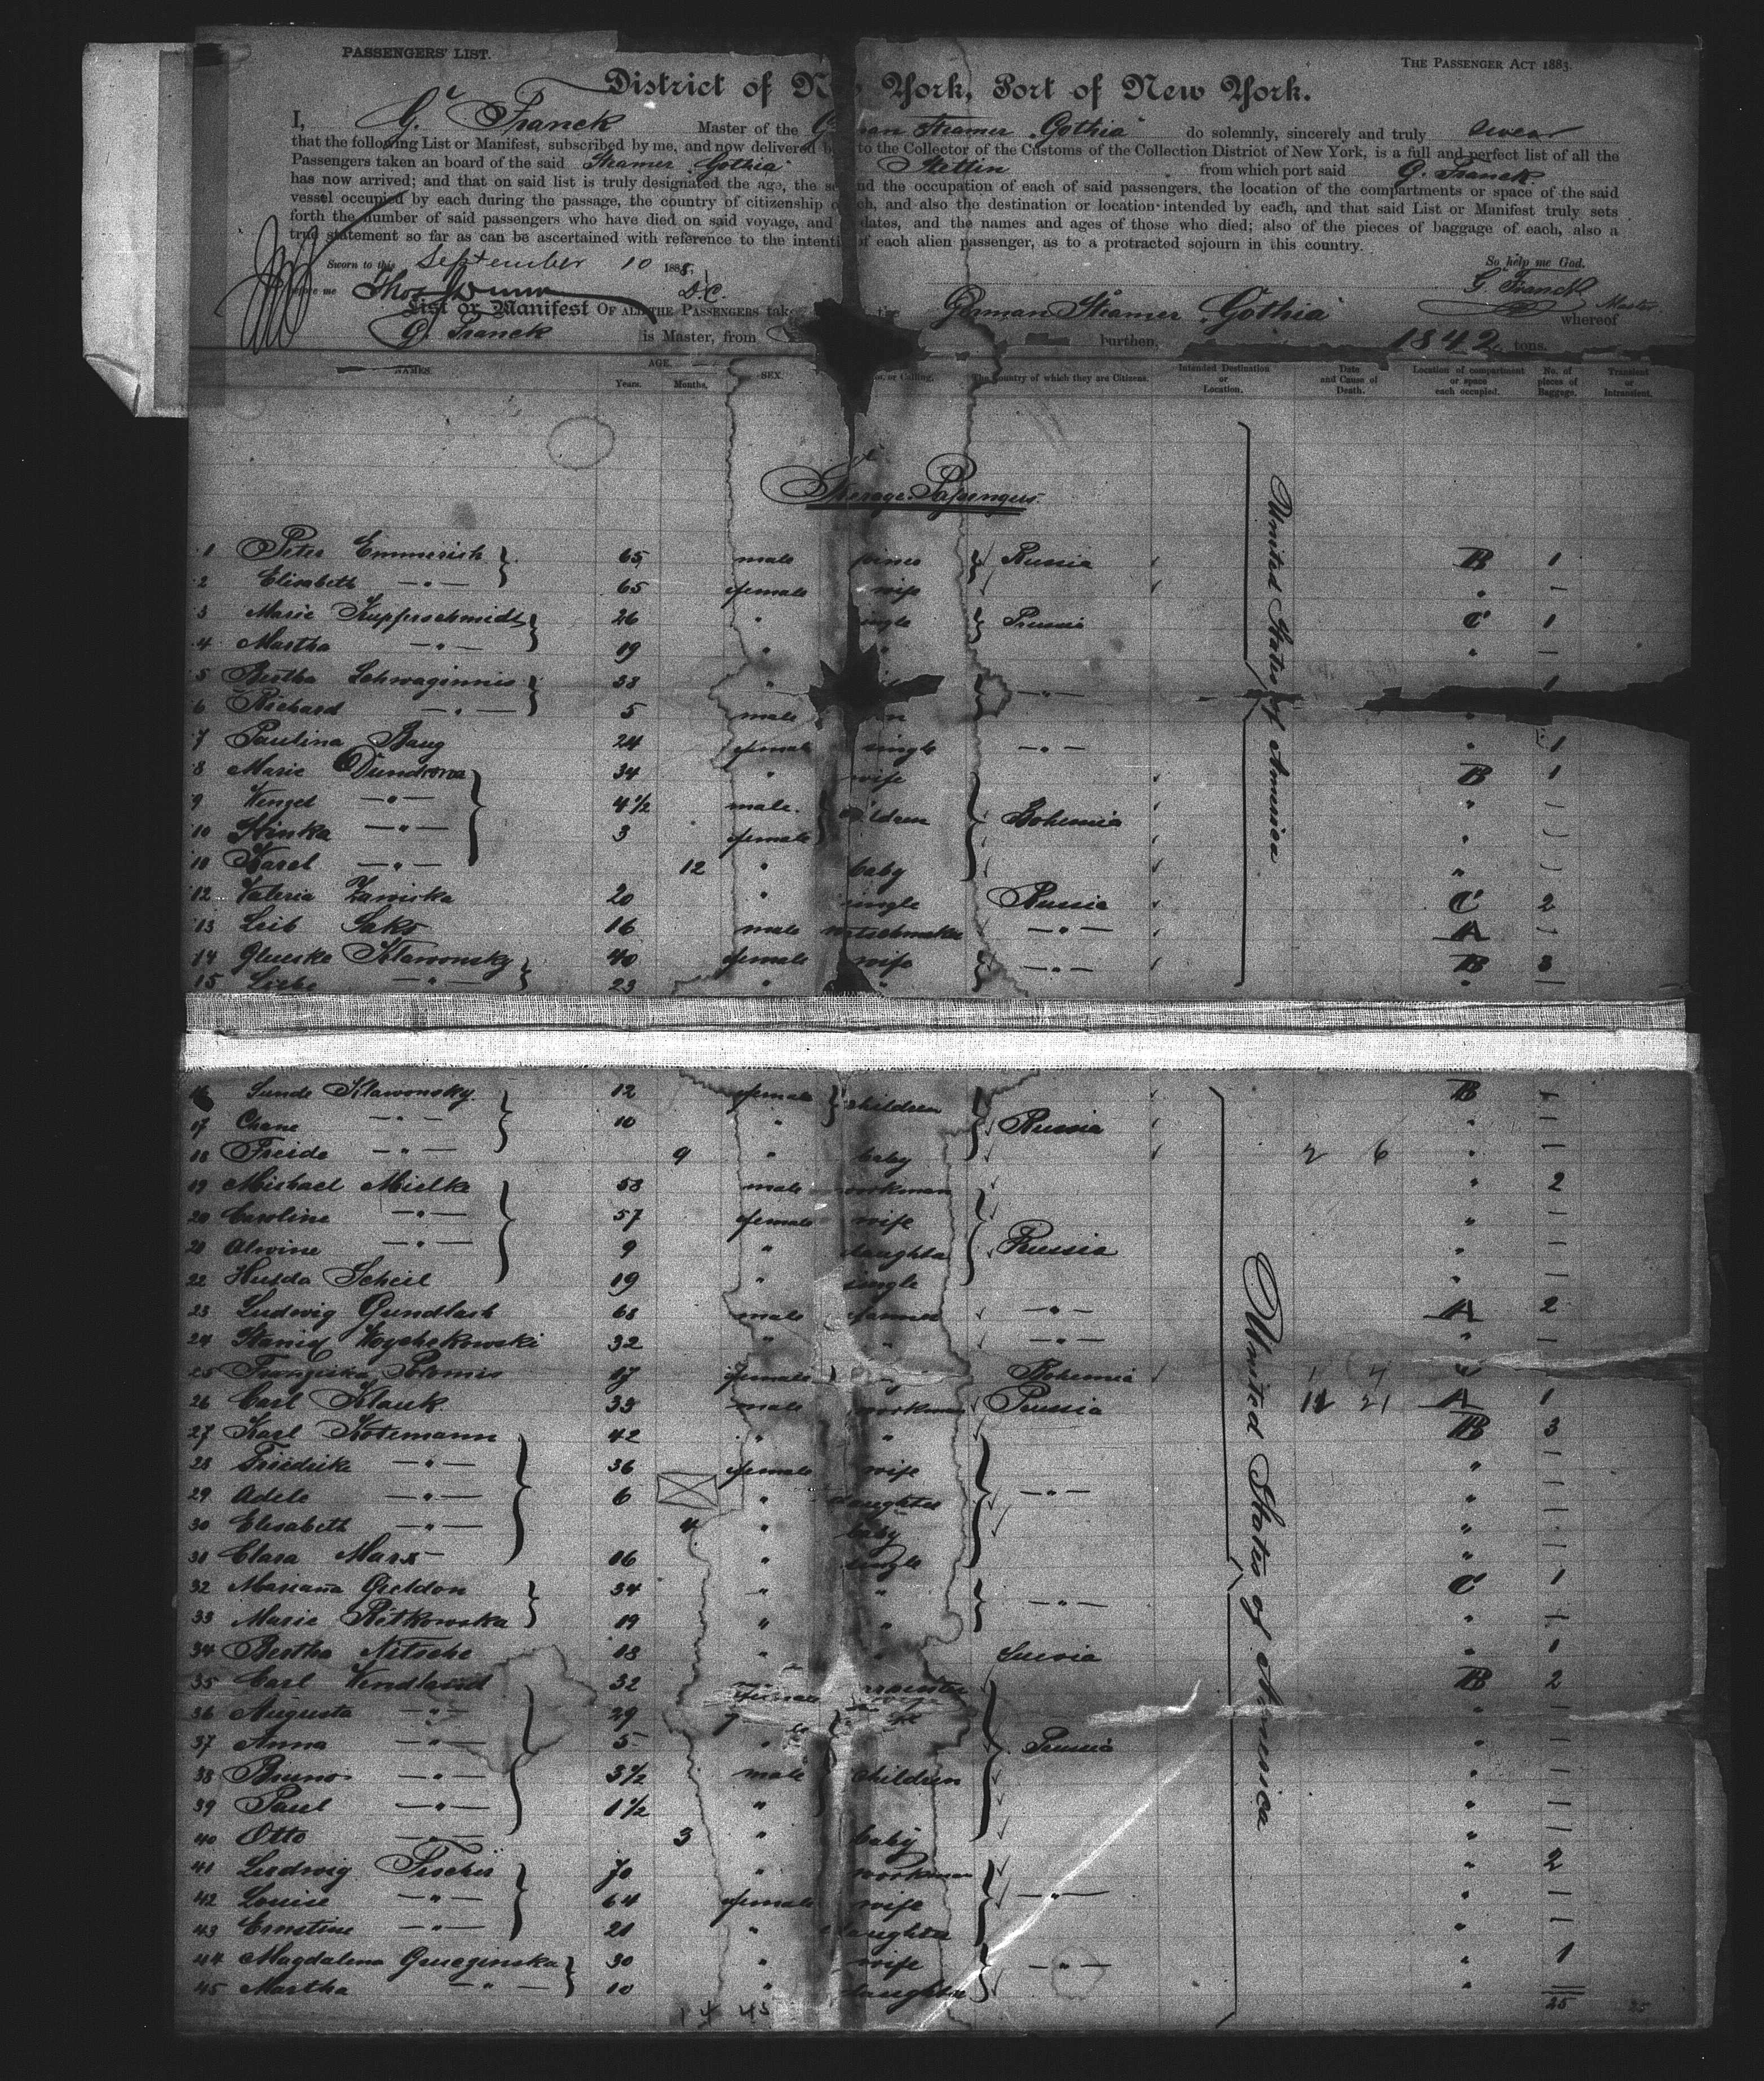 PASSENGERS' LIST.
THE PASSENGER ACT 1883.
District of New York, Port of New York.
I, G. Franck Master of the German Steamer "Gothia" do solemnly, sincerely and truly swear
that the following List or Manifest, subscribed by me, and now delivered by to the Collector of the Customs of the Collection District of New York, is a full and perfect list of all the
Passengers taken an board of the said Steamer "Gothia" Stettin from which port said G. Franck
has now arrived; and that on said list is truly designated the age, the se nd the occupation of each of said passengers, the location of the compartments or space of the said
vessel occupied by each during the passage, the country of citizenship o ch, and also the destination or location intended by each, and that said List or Manifest truly sets
forth the number of said passengers who have died on said voyage, and dates, and the names and ages of those who died; also of the pieces of baggage of each, also a
true statement so far as can be ascertained with reference to the intenti of each alien passenger, as to a protracted sojourn in this country.
Sworn to this September 10 1888.
So help me God.
before me D.C.
G. Franck
Master
List or Manifest OF ALL THE PASSENGERS tak the German Steamer "Gothia" whereof
G. Franck is Master, from burthen, 1842 tons.
NAMES. AGE. Years. Months. SEX. or Calling. The Country of which they are Citizens. Intended Destination or Location. Date and Cause of Death. Location of compartment or space each occupied. No. of pieces of Baggage. Transient or Intransient.
Steerage Passengers.
United States of America
1 Peter Emmerich 65 male Russia B 1
2 Elisabeth —"— 65 female wife " —
3 Marie Kupferschmidt 26 " single Prussia C 1
4 Martha —"— 19 " " " —
5 Bertha Schwaginnis 38 " —"— 1
6 Richard —"— 5 male "
7 Paulina Baug 24 female single —"— " 1
8 Marie Dundrova 34 " wife B 1
9 Wenzel —"— 4½ male. children Bohemia " —
10 Hinka —"— 3 female " —
10 Karel —"— 12 " baby " —
12 Valeria Zawiska 20 " single Russia C 2
13 Leib Saks 16 male —"— A —
14 Glueske Klawonsky 40 female wife —"— B 3
15 Liebe —"— 23 " " " —
16 Sunde Klawonsky 12 female children B —
17 Chane —"— 10 " Russia " —
18 Freide —"— 9 " baby 2 6 " —
19 Michael Mielke 58 male workman " 2
20 Caroline —"— 57 female wife " —
21 Alwine —"— 9 " daughter Prussia " —
22 Hulda Scheil 19 " single " —
23 Ludwig Gundlach 68 male farmer —"— A 2
24 Stanisl Woychekowski 32 " " —"— " —
25 Franziska Polomis 17 female Bohemia 1 4 —
26 Carl Klauk 33 male workman Prussia 11 21 A 1
27 Karl Kotemann 42 " " B 3
28 Friedrike —"— 36 female wife " —
29 Adele —"— 6 " daughter —"— " —
30 Elisabeth —"— 4 " baby " —
31 Clara Marx 16 " single " —
32 Mariana Geldon 34 " " C 1
33 Marie Retkowska 19 " " —"— " —
34 Bertha Nitsche 18 " " " 1
35 Carl Wendland 32 B 2
36 Augusta —"— 29 " —
37 Anna —"— 5 " Prussia " —
38 Bruno —"— 3½ male children " —
39 Paul —"— 1½ " " —
40 Otto —"— 3 " baby " —
41 Ludwig Fischer 70 " workman " 2
42 Louise —"— 64 female wife —"— " —
43 Ernstine —"— 21 " daughter " —
44 Magdalena 30 " wife —"— " 1
45 Martha —"— 10 " daughter " —
United States of America
25